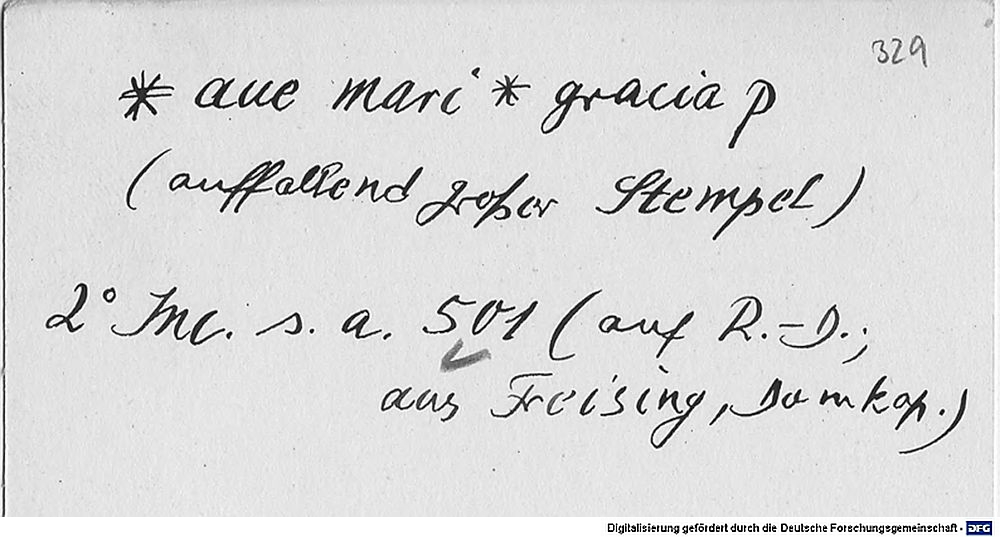 329
* aue mari * gracia p
(auffallend großer Stempel)
2° Inc. s. a. 501 (auf R.-D.;
aus Freising, Domkap.)
Digitalisierung gefördert durch die Deutsche Forschungsgemeinschaft - DFG